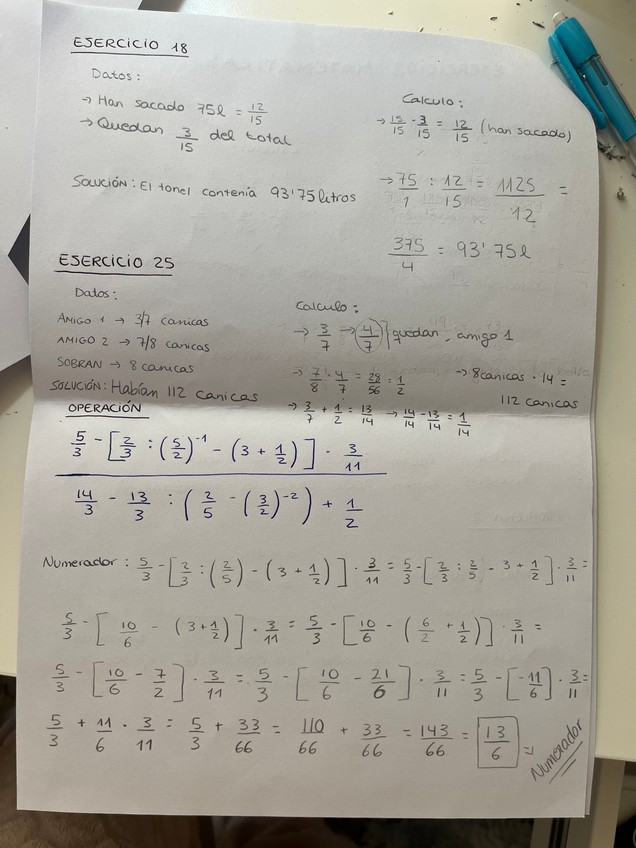 EJERCICIO 18
Datos:
→ Han sacado 75l = 12/15
→ Quedan 3/15 del total
Calculo:
→ 15/15 - 3/15 = 12/15 (han sacado)
→ 75/1 : 12/15 = 1125/12 =
375/4 = 93'75l
SOLUCIÓN: El tonel contenia 93'75 litros
EJERCICIO 25
Datos:
AMIGO 1 → 3/7 canicas
AMIGO 2 → 7/8 canicas
SOBRAN → 8 canicas
SOLUCIÓN: Habían 112 canicas
Calculo:
→ 3/7 → 4/7 } quedan, amigo 1
→ 7/8 · 4/7 = 28/56 = 1/2
→ 3/7 + 1/2 = 13/14 → 14/14 - 13/14 = 1/14
→ 8 canicas · 14 =
112 canicas
OPERACIÓN
5/3 - [2/3 : (5/2)^-1 - (3 + 1/2)] · 3/11
14/3 - 13/3 : (2/5 - (3/2)^-2) + 1/2
Numerador: 5/3 - [2/3 : (2/5) - (3 + 1/2)] · 3/11 = 5/3 - [2/3 : 2/5 - 3 + 1/2] · 3/11 =
5/3 - [10/6 - (3 + 1/2)] · 3/11 = 5/3 - [10/6 - (6/2 + 1/2)] · 3/11 =
5/3 - [10/6 - 7/2] · 3/11 = 5/3 - [10/6 - 21/6] · 3/11 = 5/3 - [-11/6] · 3/11 =
5/3 + 11/6 · 3/11 = 5/3 + 33/66 = 110/66 + 33/66 = 143/66 = 13/6 = Numerador